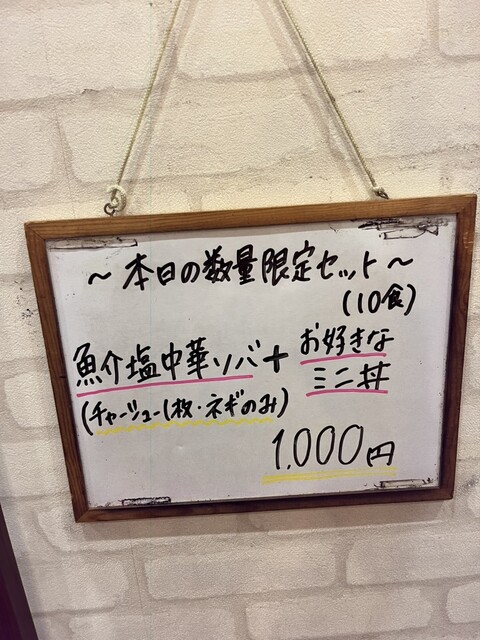 ～本日の数量限定セット～
(10食)
魚介塩中華ソバ＋お好きなミニ丼
(チャーシュー1枚・ネギのみ)
1,000円